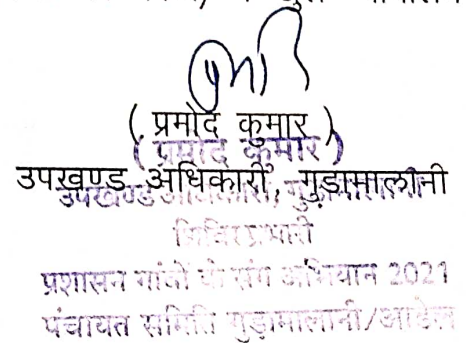 ( प्रमोद कुमार )
( प्रमोद कुमार )
उपखण्ड अधिकारी, गुड़ामालानी
उपखण्ड अधिकारी, गुड़ामालानी
शिविर प्रभारी
प्रशासन गांवों के संग अभियान 2021
पंचायत समिति गुड़ामालानी/आडेल